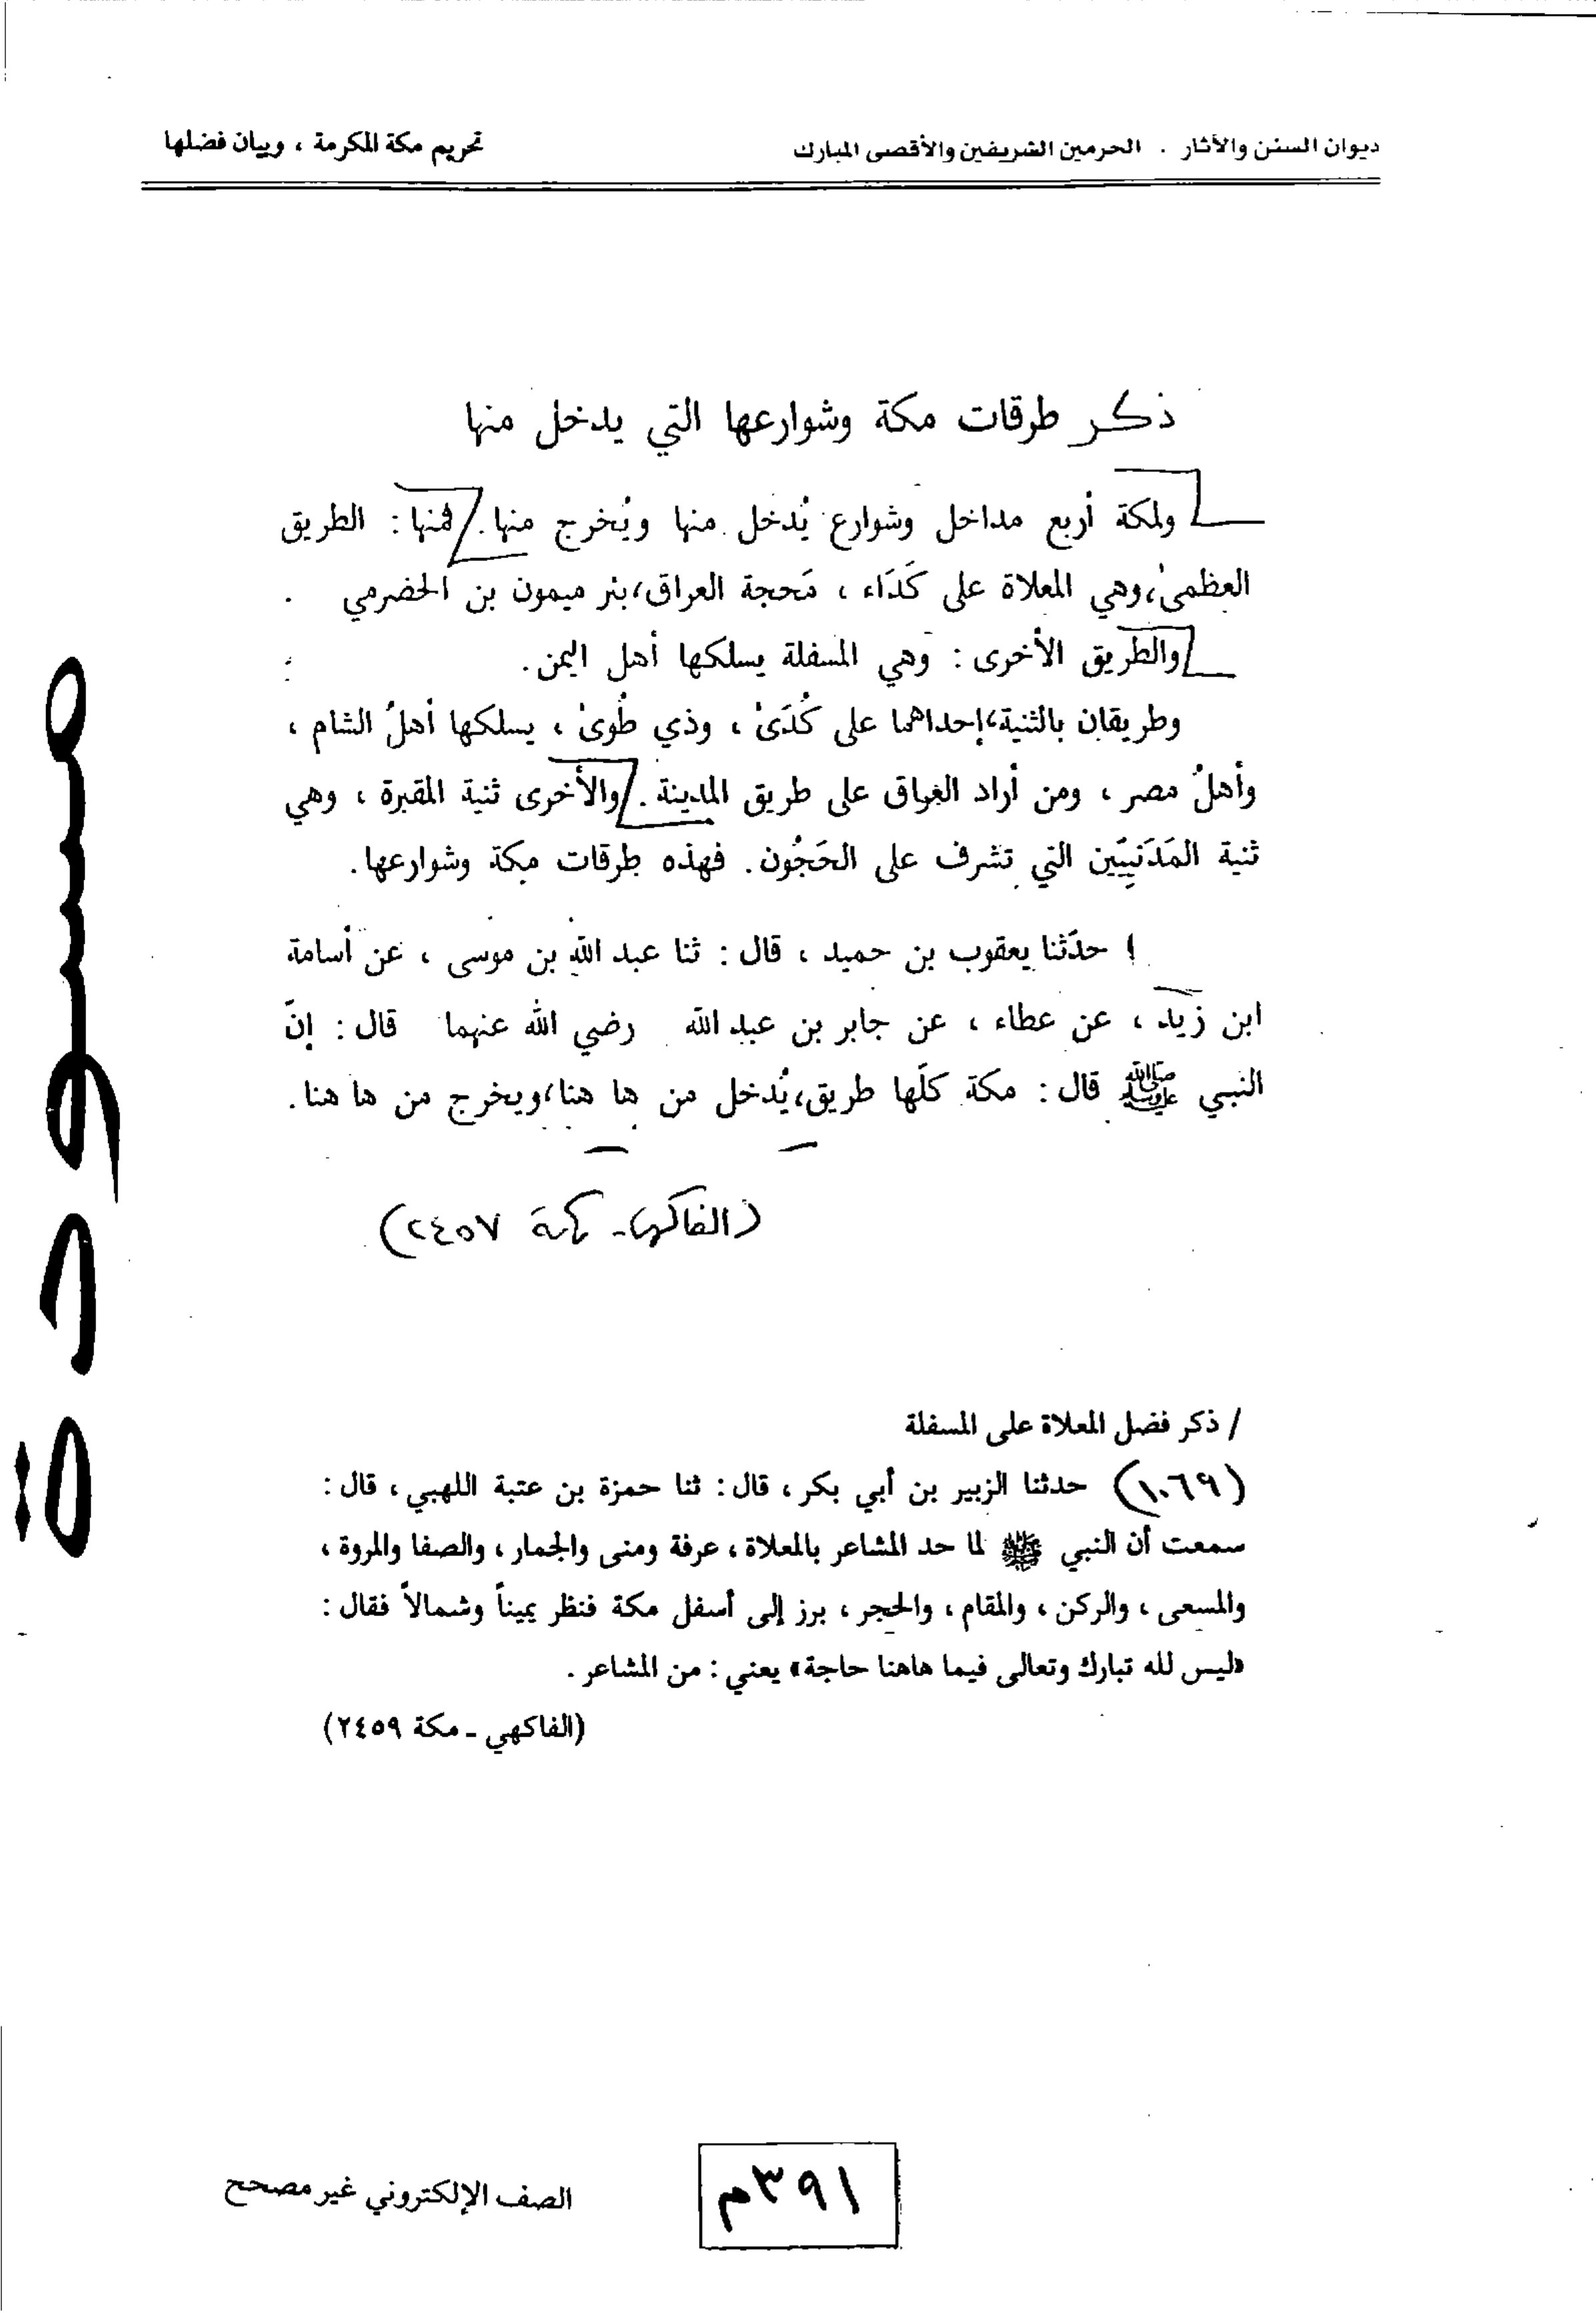 ديوان السنن والآثار . الحرمين الشريفين والأقصى المبارك
تحريم مكة المكرمة ، وبيان فضلها
ذكر طرقات مكة وشوارعها التي يدخل منها
ولمكة أربع مداخل وشوارع يُدخل منها ويُخرج منها. فمنها : الطريق
العظمىٰ، وهي المعلاة على كَدَاء ، مَحجة العراق، بئر ميمون بن الحضرمي .
والطريق الأخرى : وهي المسفلة يسلكها أهل اليمن.
وطريقان بالثنية، إحداهما على كُدَىٰ ، وذي طُوىٰ ، يسلكها أهلُ الشام ،
وأهلُ مصر ، ومن أراد العراق على طريق المدينة . والأخرى ثنية المقبرة ، وهي
ثنية المَدَنيِّين التي تشرف على الحَجُون. فهذه طرقات مكة وشوارعها.
حدّثنا يعقوب بن حميد ، قال : ثنا عبد الله بن موسى ، عن أسامة
ابن زيد ، عن عطاء ، عن جابر بن عبد الله رضي الله عنهما قال : إنّ
النبي ﷺ قال : مكة كلّها طريق، يُدخل من ها هنا، ويخرج من ها هنا.
(الفاكهي - مكة ٢٤٥٧)
/ ذكر فضل المعلاة على المسفلة
(١٠٦٩) حدثنا الزبير بن أبي بكر ، قال : ثنا حمزة بن عتبة اللهبي ، قال :
سمعت أن النبي ﷺ لما حد المشاعر بالمعلاة ، عرفة ومنى والجمار ، والصفا والمروة ،
والمسعى ، والركن ، والمقام ، والحجر ، برز إلى أسفل مكة فنظر يميناً وشمالاً فقال :
«ليس لله تبارك وتعالى فيما هاهنا حاجة» يعني : من المشاعر .
(الفاكهي - مكة ٢٤٥٩)
٣٩١م
الصف الإلكتروني غير مصحح
مسودة